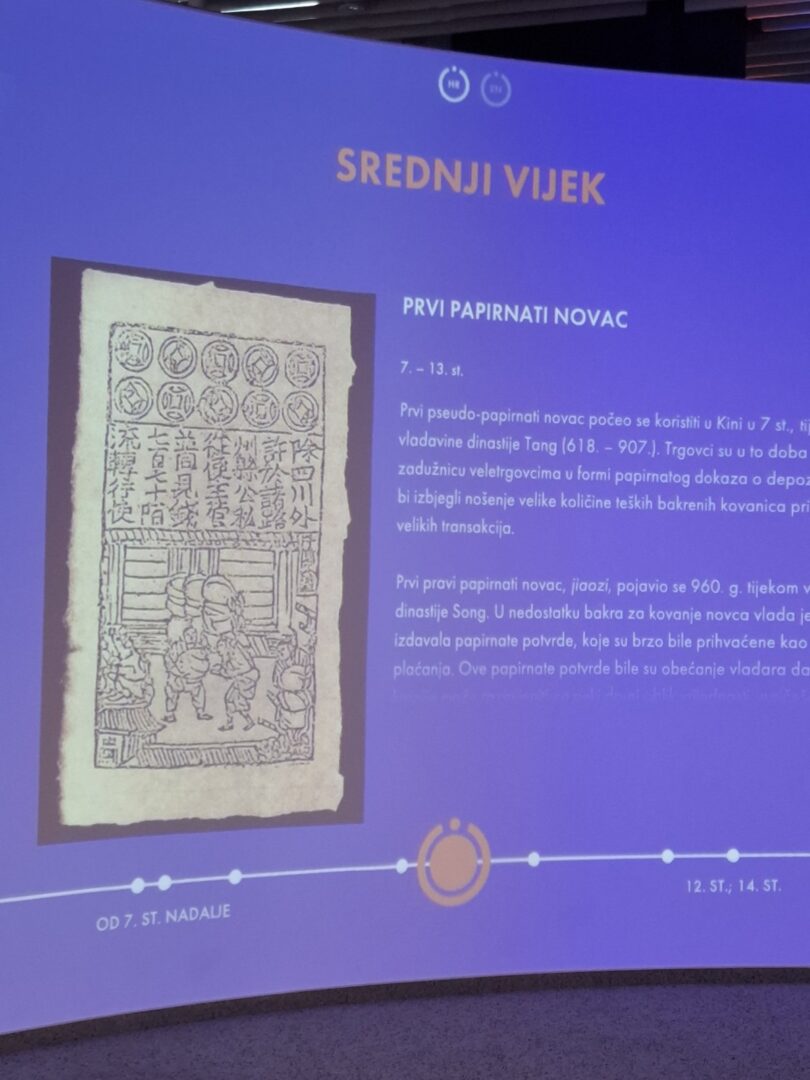 HR EN
SREDNJI VIJEK
PRVI PAPIRNATI NOVAC
7. – 13. st.
Prvi pseudo-papirnati novac počeo se koristiti u Kini u 7 st., tij
vladavine dinastije Tang (618. – 907.). Trgovci su u to doba
zadužnicu veletrgovcima u formi papirnatog dokaza o depoz
bi izbjegli nošenje velike količine teških bakrenih kovanica pri
velikih transakcija.
Prvi pravi papirnati novac, jiaozi, pojavio se 960. g. tijekom v
dinastije Song. U nedostatku bakra za kovanje novca vlada je
izdavala papirnate potvrde, koje su brzo bile prihvaćene kao
plaćanja. Ove papirnate potvrde bile su obećanje vladara da
除四川外
許於諸路
州縣公私
從便主管
並同見錢
七百七十陌
流轉行使
OD 7. ST. NADALJE
12. ST.; 14. ST.